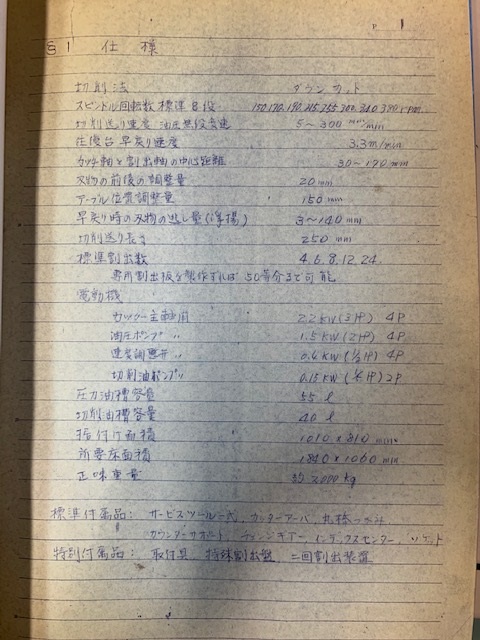 P 1
§1 仕様
切削法 ダウンカット
スピンドル回転数 標準8段 150.170.190.215.255.300.340.390 r.p.m
切削送り速度 油圧無段変速 5～300 mm/min
往復台早戻り速度 3.3 m/min
カッター軸と割出軸の中心距離 30～190 mm
刃物の前後の調整量 20 mm
テーブル位置調整量 150 mm
早戻り時の刃物の逃し量(浮揚) 3～140 mm
切削送り長さ 250 mm
標準割出数 4.6.8.12.24.
専用割出板を製作すれば 50等分まで可能
電動機
カッター主軸用 2.2 KW (3HP) 4P
油圧ポンプ 〃 1.5 KW (2HP) 4P
速度調整弁 〃 0.4 KW (1/2HP) 4P
切削油ポンプ 〃 0.15 KW 2P
圧力油槽容量 55 ℓ
切削油槽容量 40 ℓ
据付け面積 1010 × 810 mm
所要床面積 1840 × 1060 mm
正味重量 約 2,000 kg
標準付属品: サービスツール一式, カッターアーバ, 丸棒つかみ
カウンターサポート, チェンジギヤー, インデックスセンター, ソケット
特別付属品: 取付具, 特殊割出盤 二回割出装置